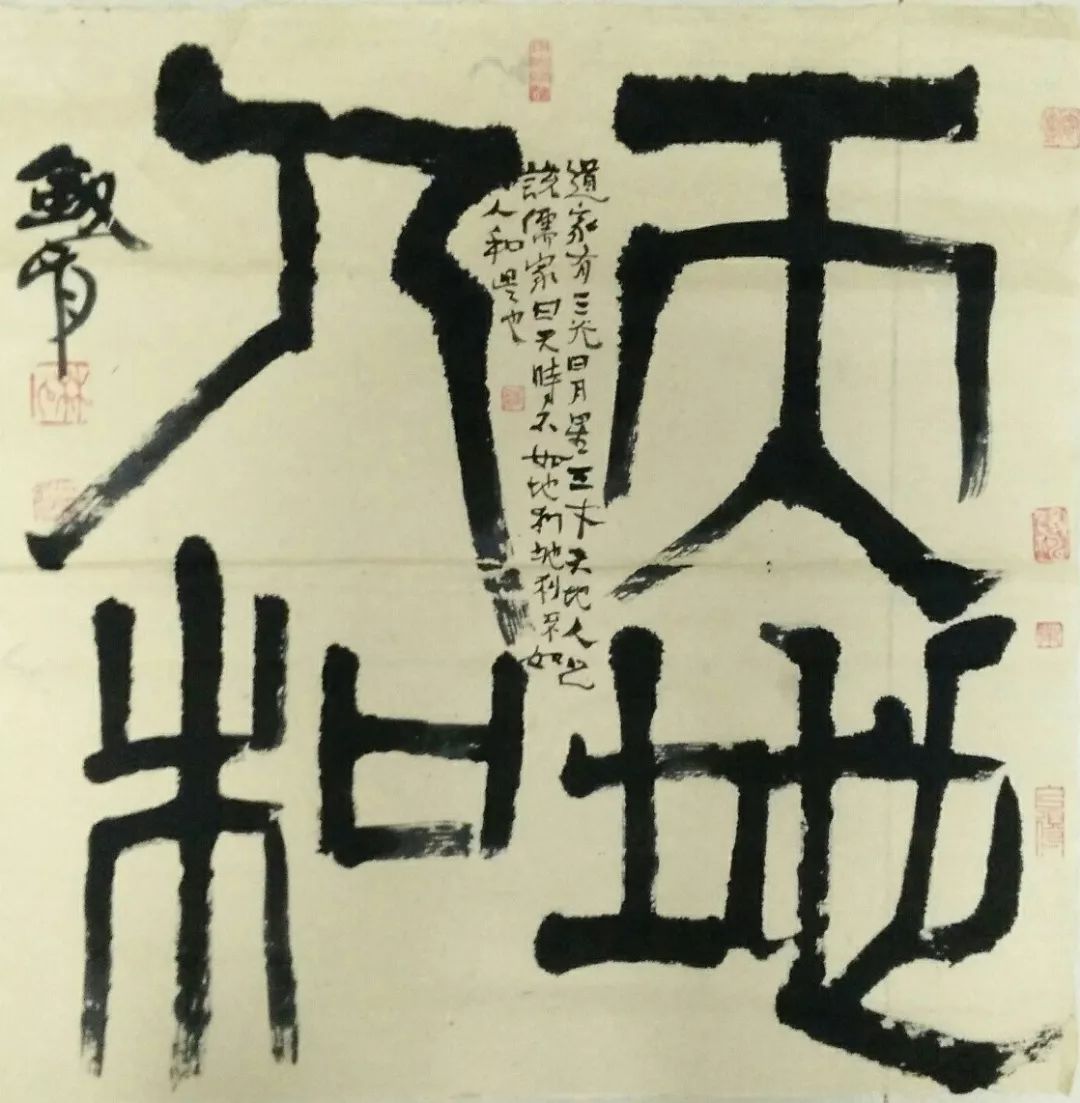 天地
人和
道家有三光日月星三才天地人之
儒家曰天時不如地利地利不如
人和是也